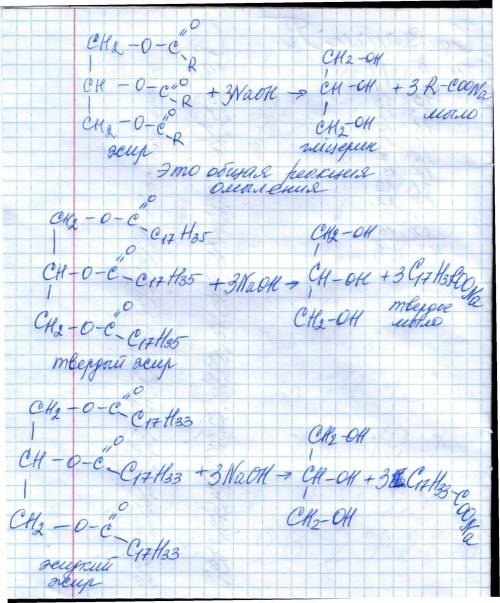 CH2 - O - C = O
R
CH - O - C = O
R
+ 3NaOH → CH2-OH
CH-OH
CH2-OH
+ 3 R-COONa
CH2 - O - C = O
R
жир
глицерин
мыло
Это общая реакция
омыления
CH2 - O - C = O
C17H35
CH - O - C = O
C17H35
+ 3NaOH → CH2-OH
CH-OH
CH2-OH
+ 3C17H35COONa
CH2 - O - C = O
C17H35
твердый жир
твердое
мыло
CH2 - O - C = O
C17H33
CH - O - C = O
C17H33
+ 3NaOH → CH2-OH
CH-OH
CH2-OH
+ 3C17H33-COONa
CH2 - O - C = O
C17H33
жидкий
жир